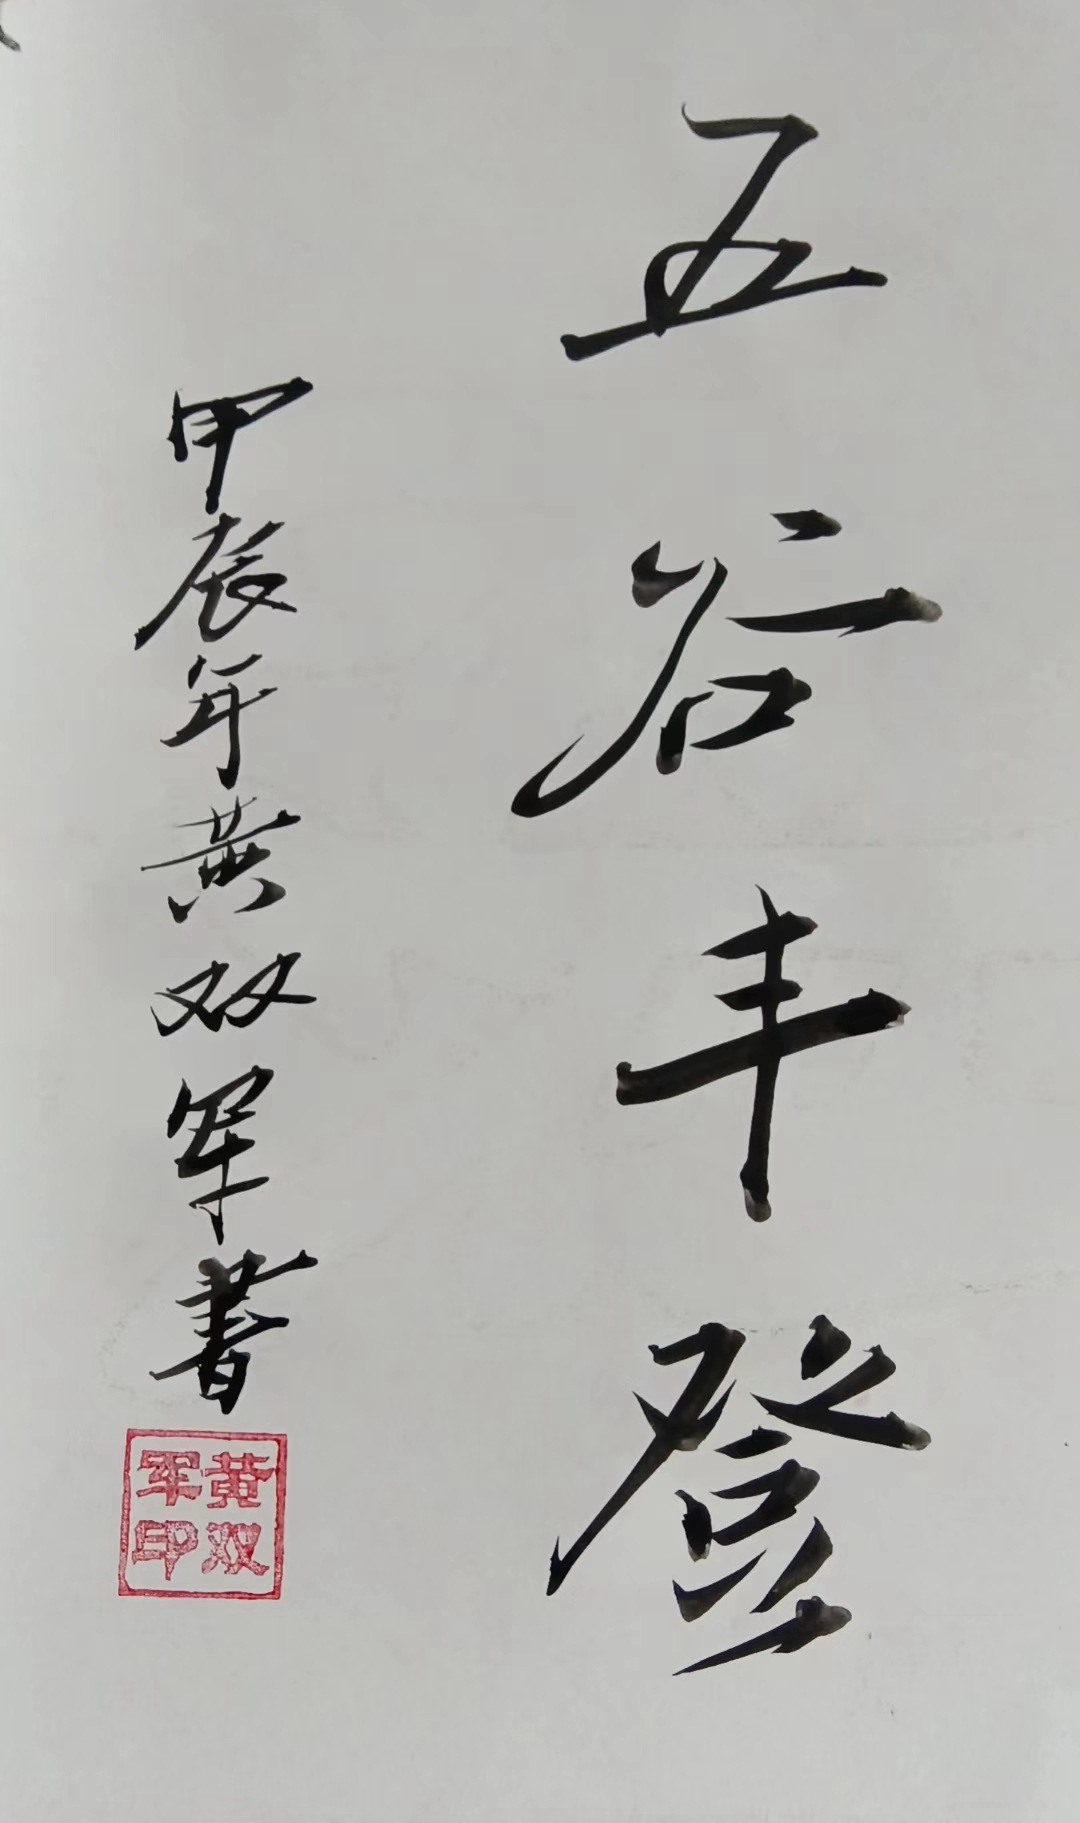 五谷丰登
甲辰年黄双军书
黄双
军印